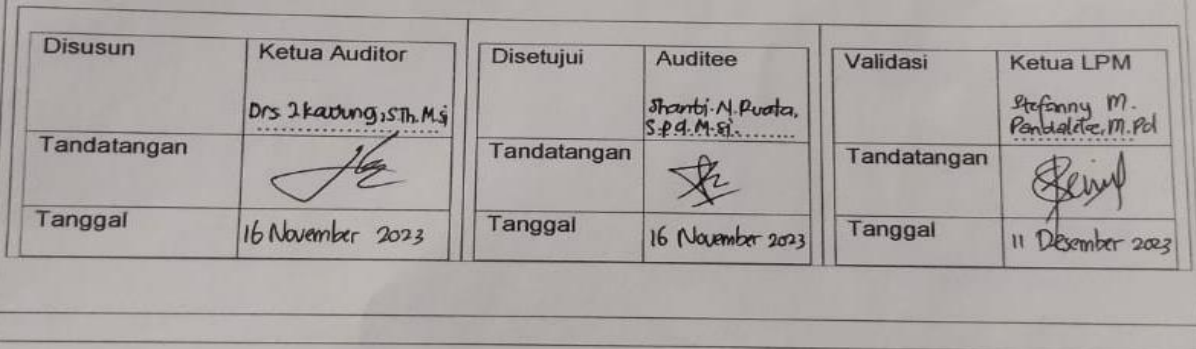 Disusun
Ketua Auditor
Drs J Karung, S.Th. M.Si
Tandatangan
Tanggal
16 November 2023
Disetujui
Auditee
Shanti. N. Ruata,
S.Pd. M.Si.
Tandatangan
Tanggal
16 November 2023
Validasi
Ketua LPM
Stefanny M.
Pandaleke, M.Pd
Tandatangan
Tanggal
11 Desember 2023